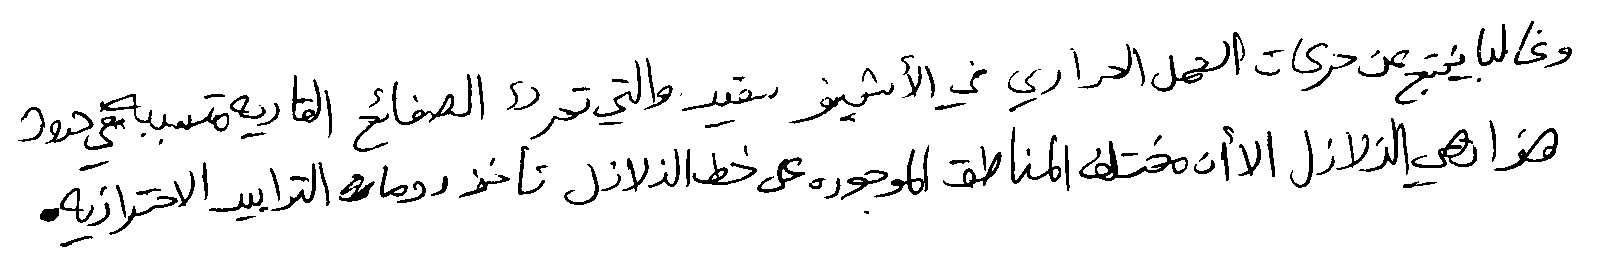 وغالبا ينتج عن حركات الحمل الحراري في الأثينو سفير والتي تحرك الصفائح القاريه متسببه في حدود
هزا هي الزلازل الا أن مختلف المناطق الموجوده على خط الزلازل تاخذ دوما التدابير الاحترازيه.